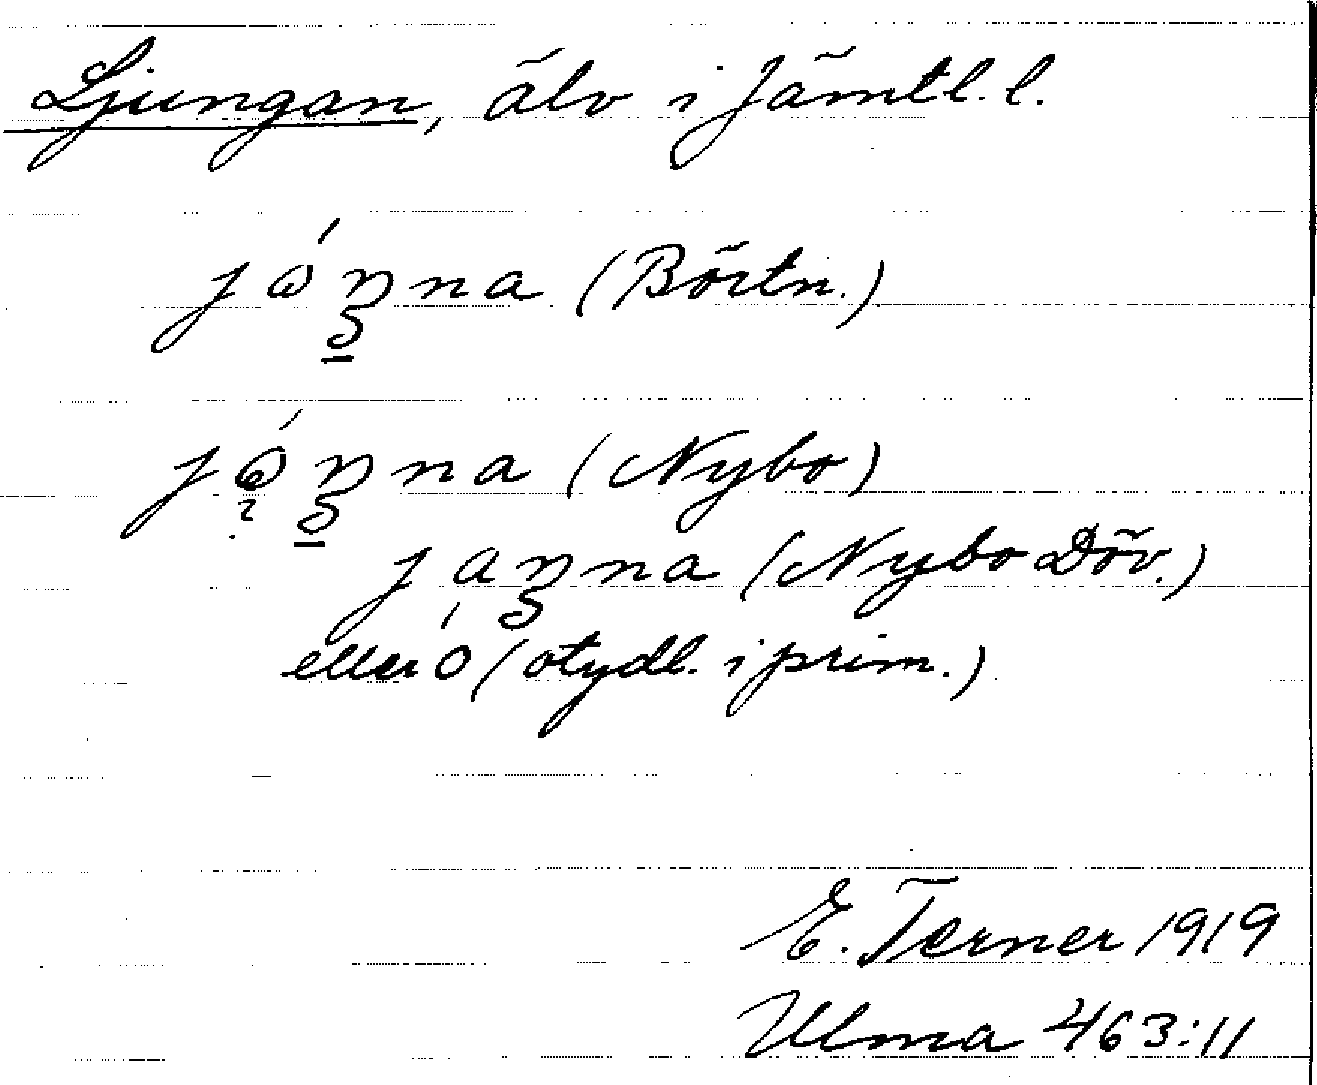 Ljungan, älv i Jämtl. l.
(Börtn.)
(Nybo)
(Nybo Döv.)
eller ó (otydl. i prim.)
E. Terner 1919
Ulma 463:11